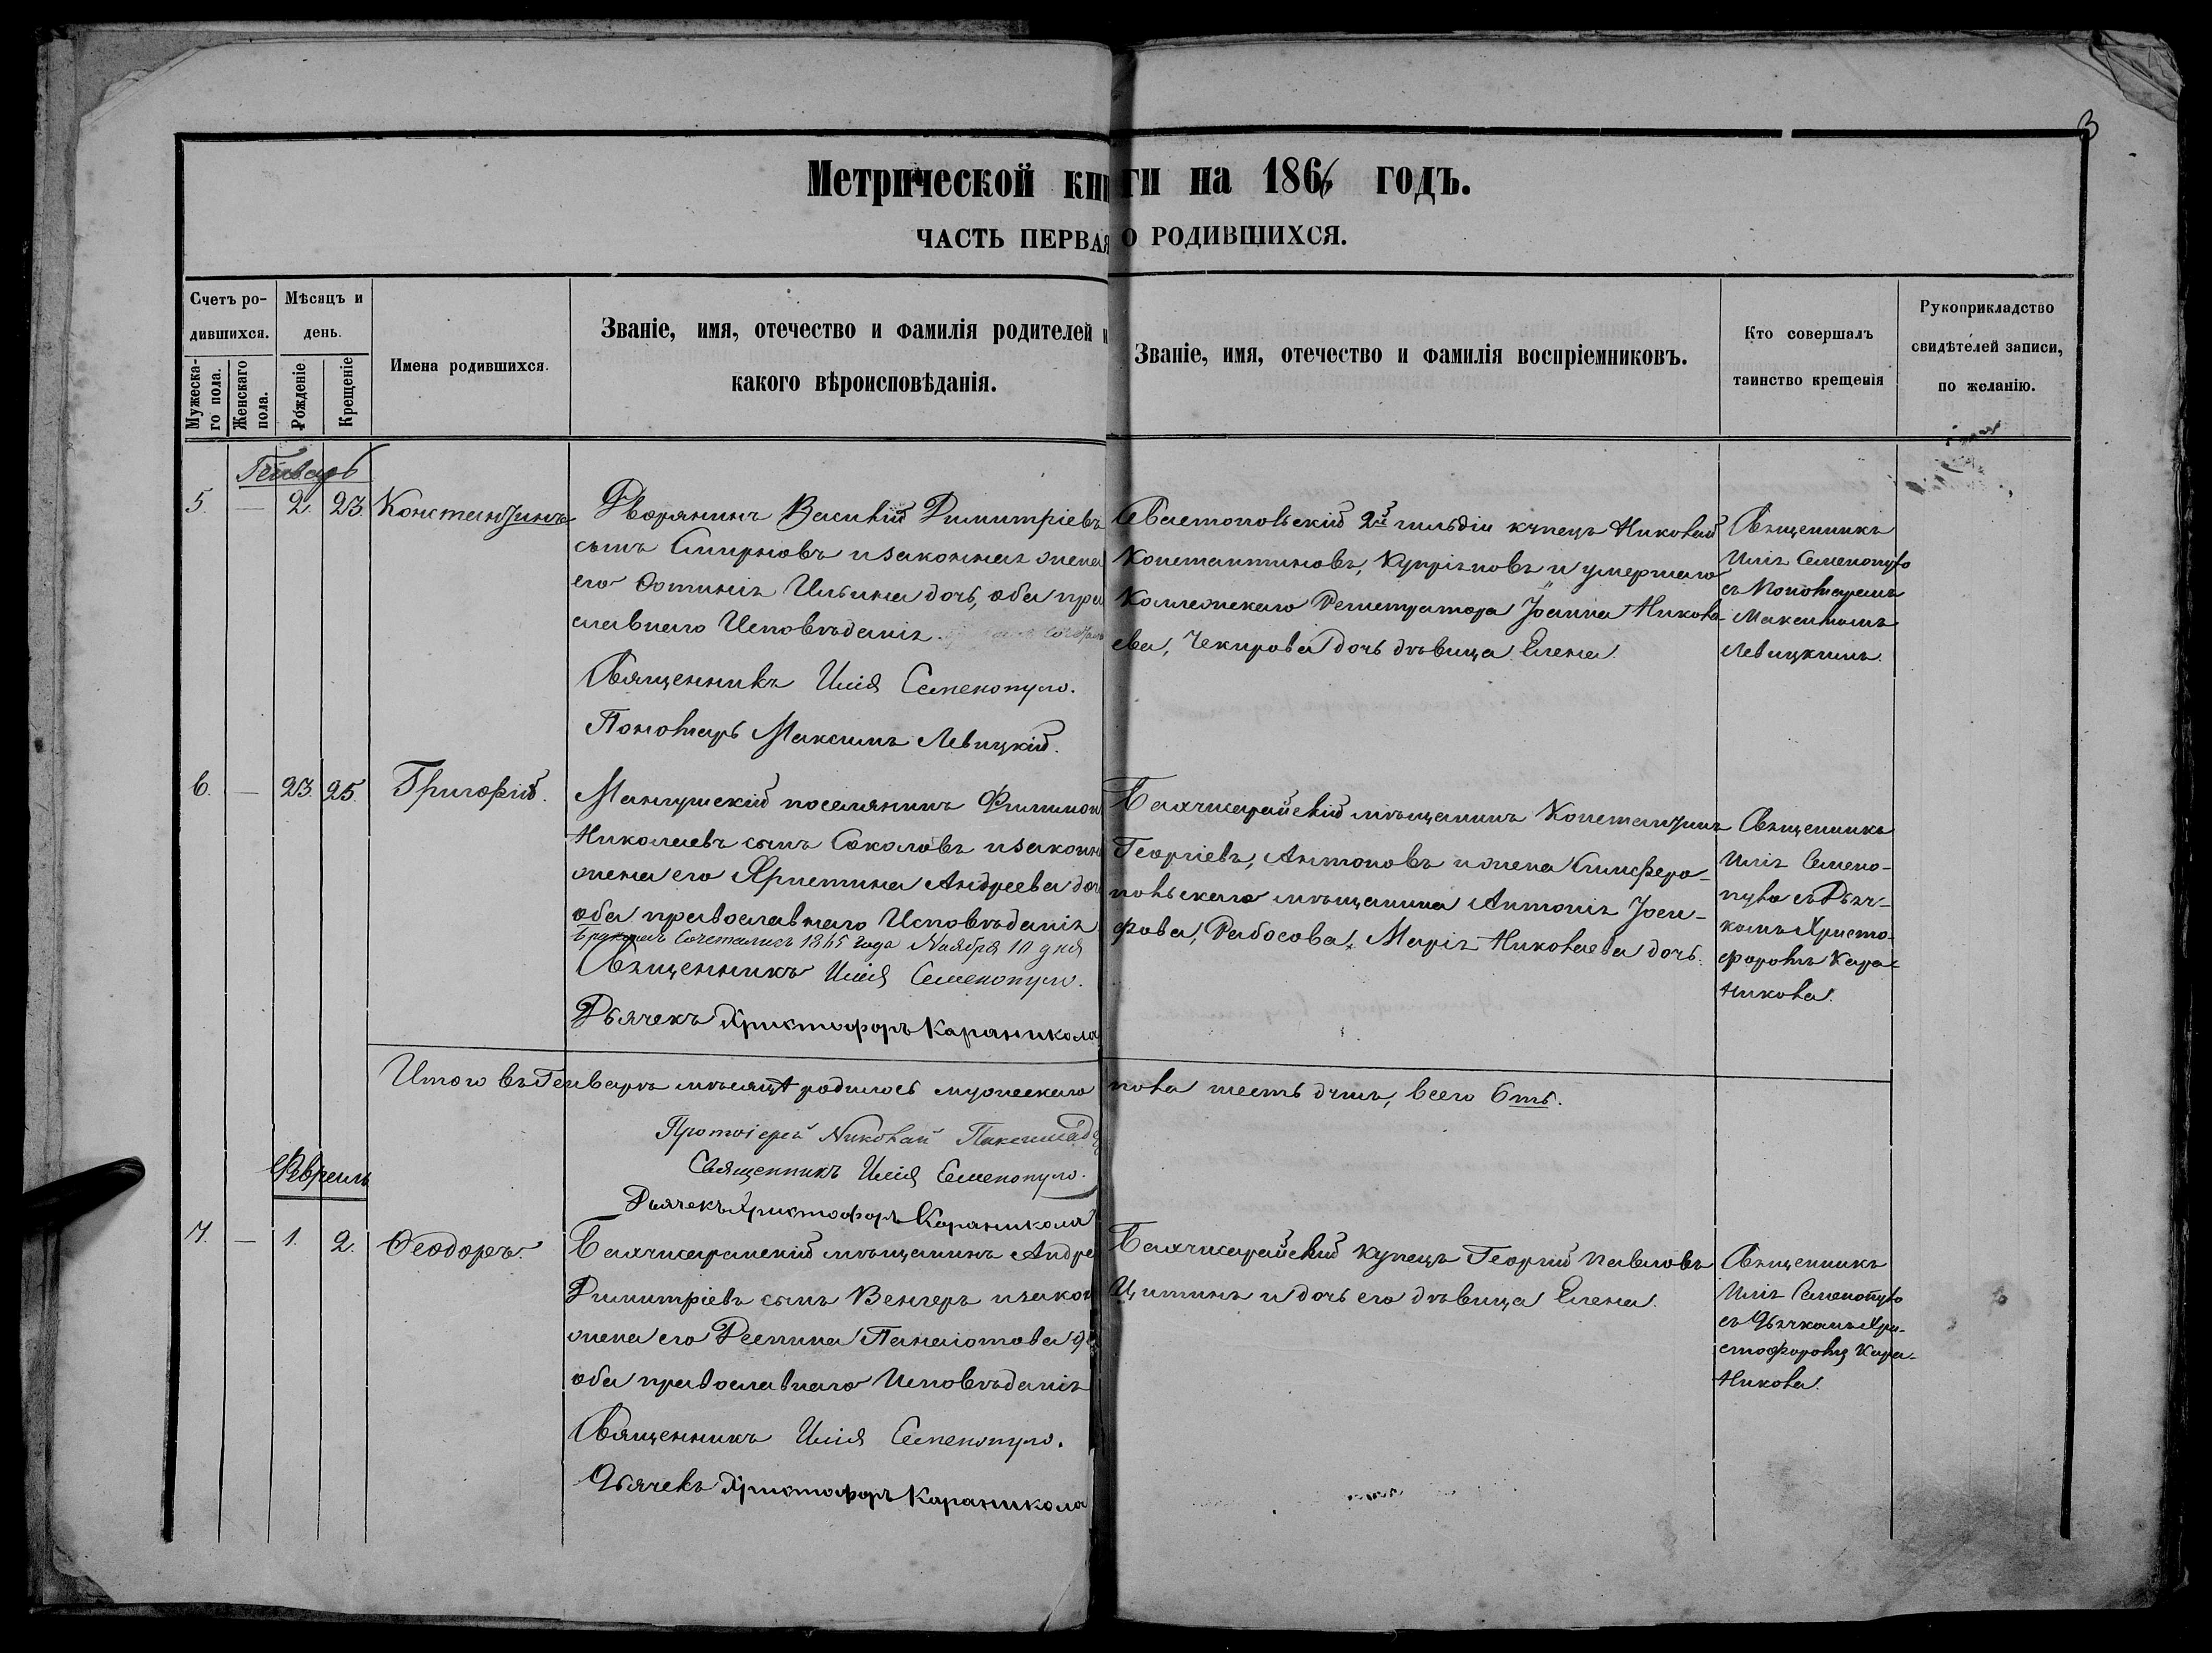 3
Метрической книги на 1866 годъ.
ЧАСТЬ ПЕРВАЯ О РОДИВШИХСЯ.
Счетъ ро-
дившихся.
Мужеска-
го пола.
Женскаго
пола.
Мѣсяцъ и
день.
Рожденіе
Крещеніе
Имена родившихся.
Званіе, имя, отечество и фамилія родителей и
какого вѣроисповѣданія.
Званіе, имя, отечество и фамилія воспріемниковъ.
Кто совершалъ
таинство крещенія
Рукоприкладство
свидѣтелей записи,
по желанію.
Генварь
5. — 2. 23. Константинъ
Дворянинъ Василій Димитріевъ
сынъ Смирновъ и законная жена
его Фотинія Ильина дочь, оба пра
славнаго Исповѣданія.
Священникъ Илія Семенопуло.
Пономарь Максимъ Левицкій.
Севастопольскій 2й гильдіи купецъ Николай
Константиновъ, Купріяновъ и умершаго
Коллежскаго Регистратора Іоанна Никола-
ева, Чекирова дочь дѣвица Елена.
Священникъ
Илія Семенопуло
съ Пономаремъ
Максимомъ
Левицкимъ.
6. — 23. 25. Григорій.
Мангушскій поселянинъ Филимон
Николаевъ сынъ Соколовъ и законн
жена его Христина Андреева доч
оба православнаго Исповѣданія
Бракомъ Сочетались 1865 года Ноября 10 дня
Священникъ Илія Семенопуло.
Дьячекъ Христофоръ Караникола
Бахчисарайскій мѣщанинъ Константинъ
Георгіевъ, Антоновъ и жена Симферо-
польскаго мѣщанина Антонія Іоси-
фова, Рабосова, Марія Николаева дочь.
Священникъ
Илія Семено-
пуло съ Дьяч-
комъ Христо-
форомъ Кара-
Никола.
Итого въ Генварѣ мѣсяцѣ родилось мужескаго пола шесть душъ, всего 6ть.
Протоіерей Николай
Священникъ Илія Семенопуло.
Дьячекъ Христофоръ Караникола
Февраль
7. — 1. 2. Ѳеодоръ.
Бахчисарайскій мѣщанинъ Андре
Димитріевъ сынъ Венгеръ и закон
жена его Деспина Панаіотова до
оба православнаго Исповѣданія
Священникъ Илія Семенопуло.
Дьячекъ Христофоръ Караникола
Бахчисарайскій купецъ Георгій Павловъ
Цитинъ и дочь его дѣвица Елена.
Священникъ
Илія Семенопуло
съ Дьячкомъ Хри-
стофоромъ Кара-
Никола.